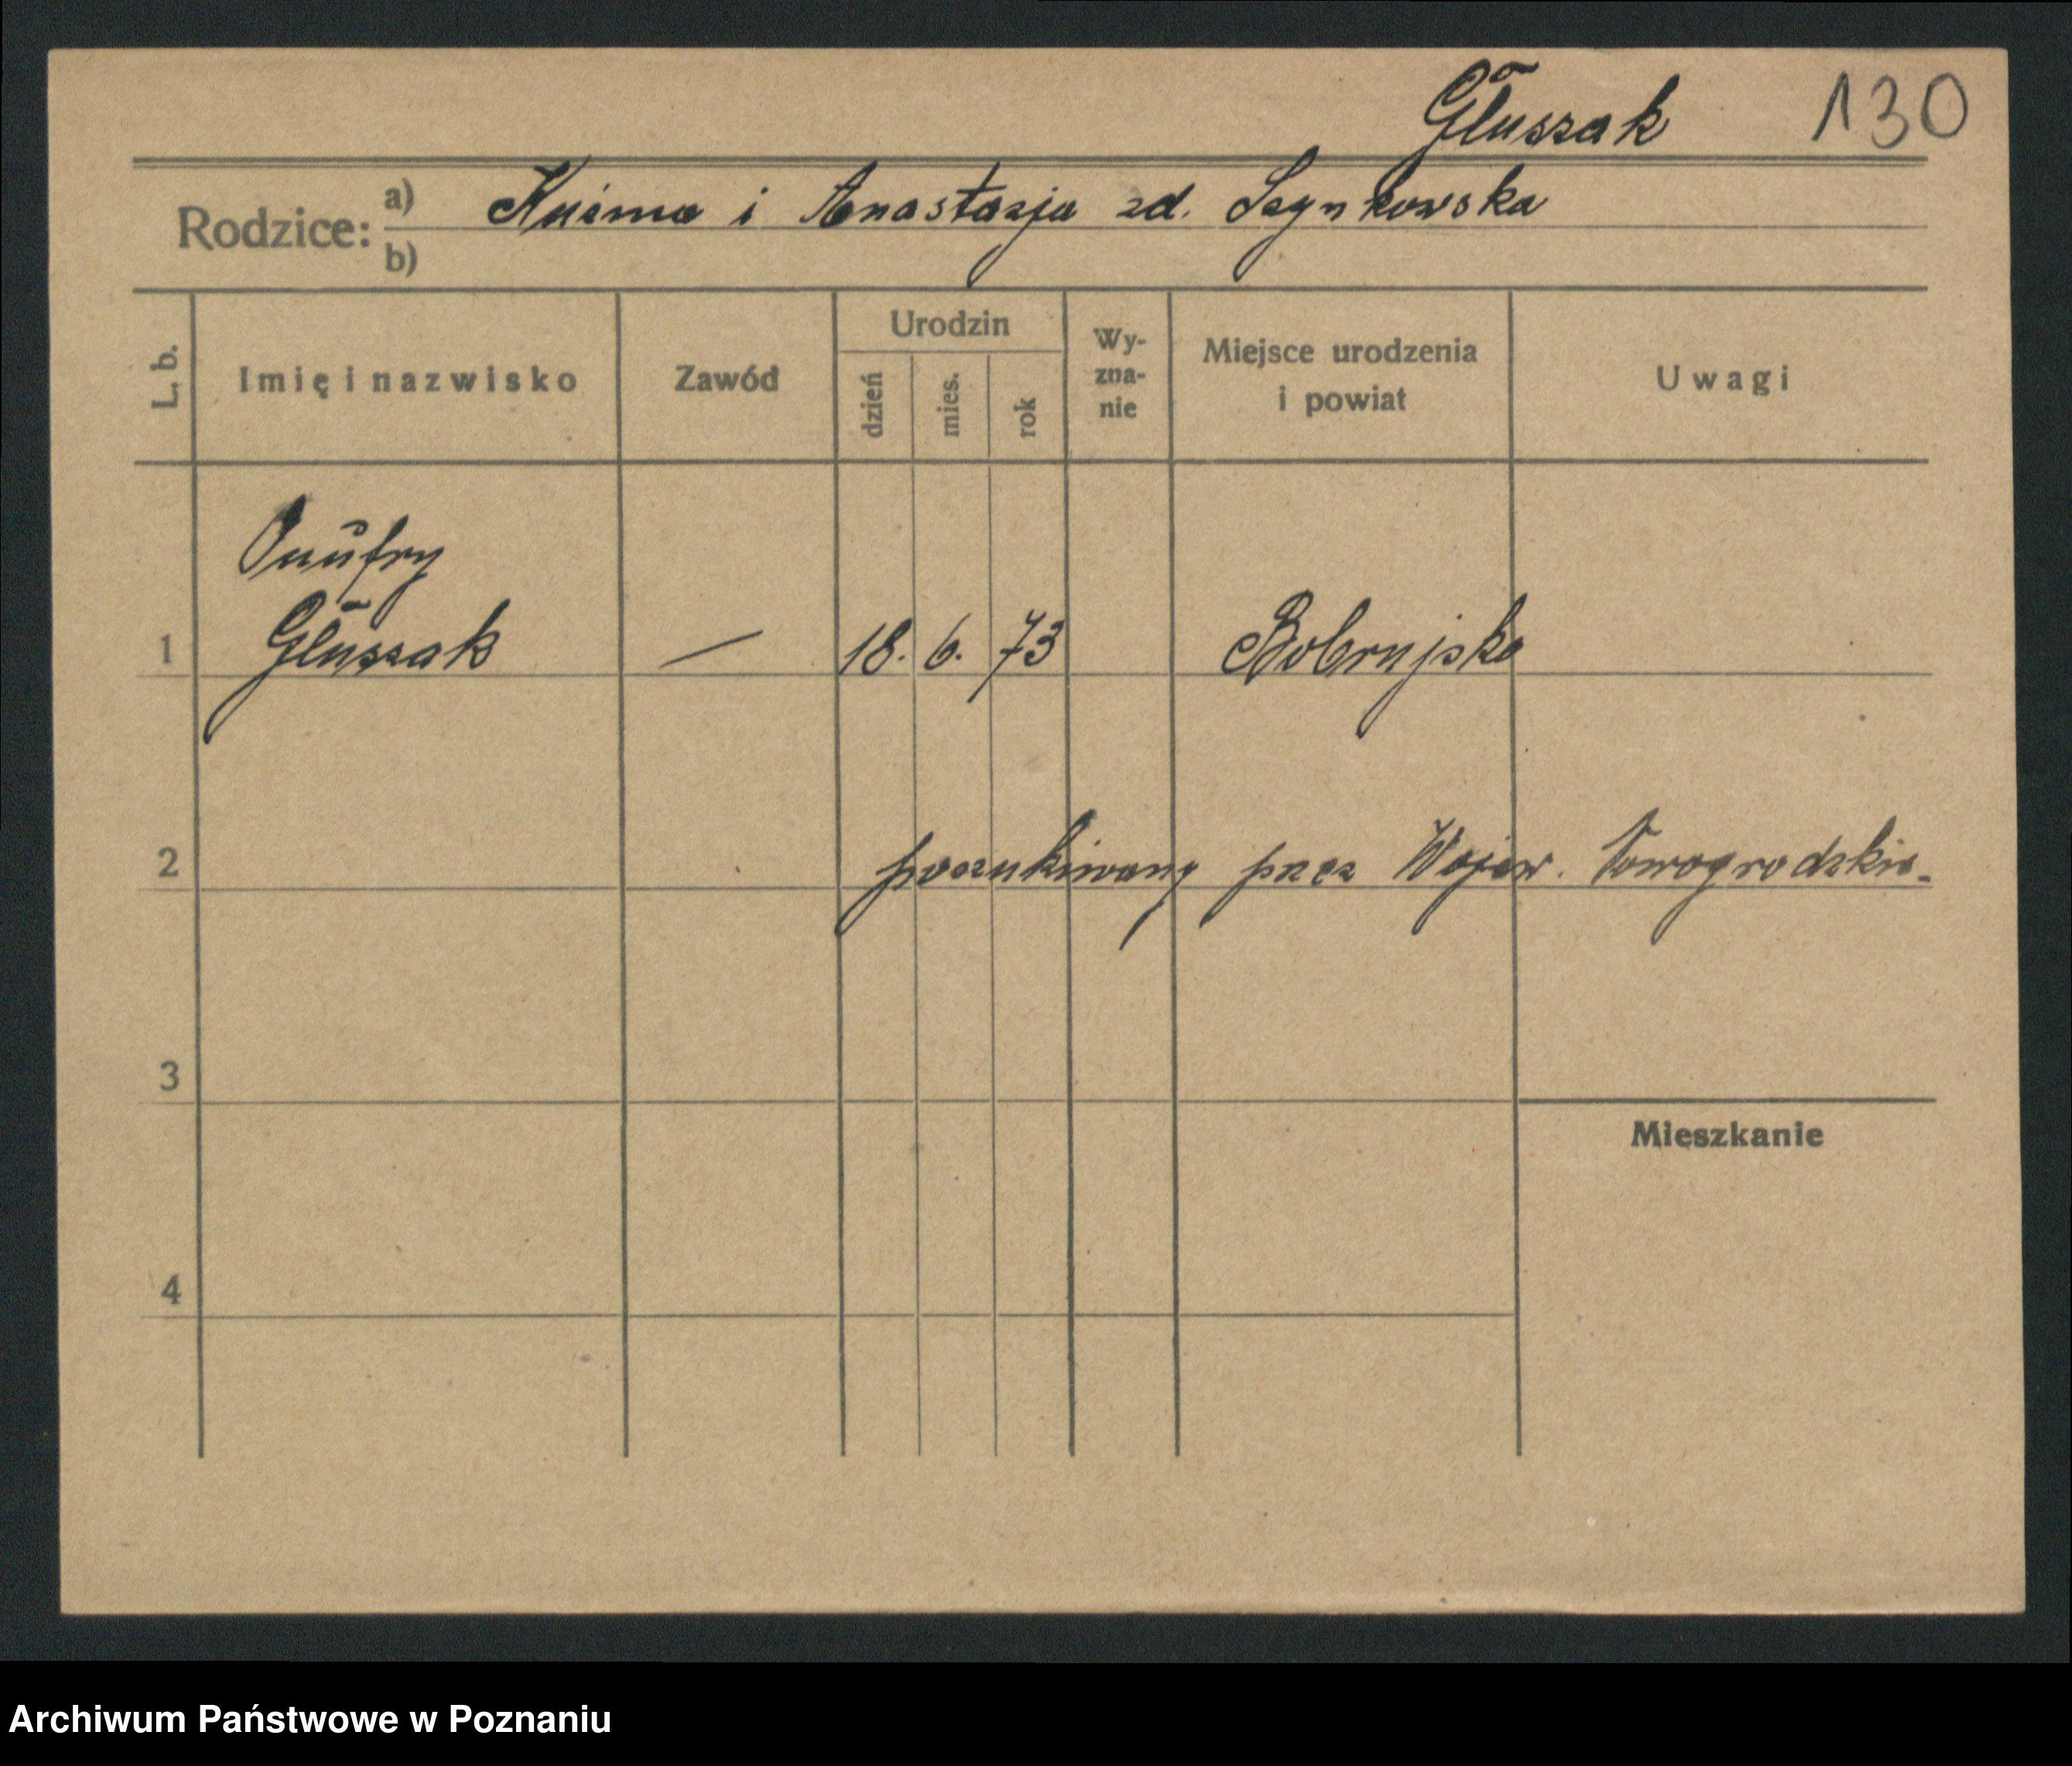 Głuszak 130
Rodzice: a) Kuźma i Anastazja zd. Szynkowska
b)
L. b. Imię i nazwisko Zawód Urodzin dzień mies. rok Wy-zna-nie Miejsce urodzenia i powiat Uwagi
Onufry
1 Głuszak — 18. 6. 73 Bobrujsko
2 poszukiwany przez Wojew. Nowogrodzkie.
3
Mieszkanie
4
Archiwum Państwowe w Poznaniu